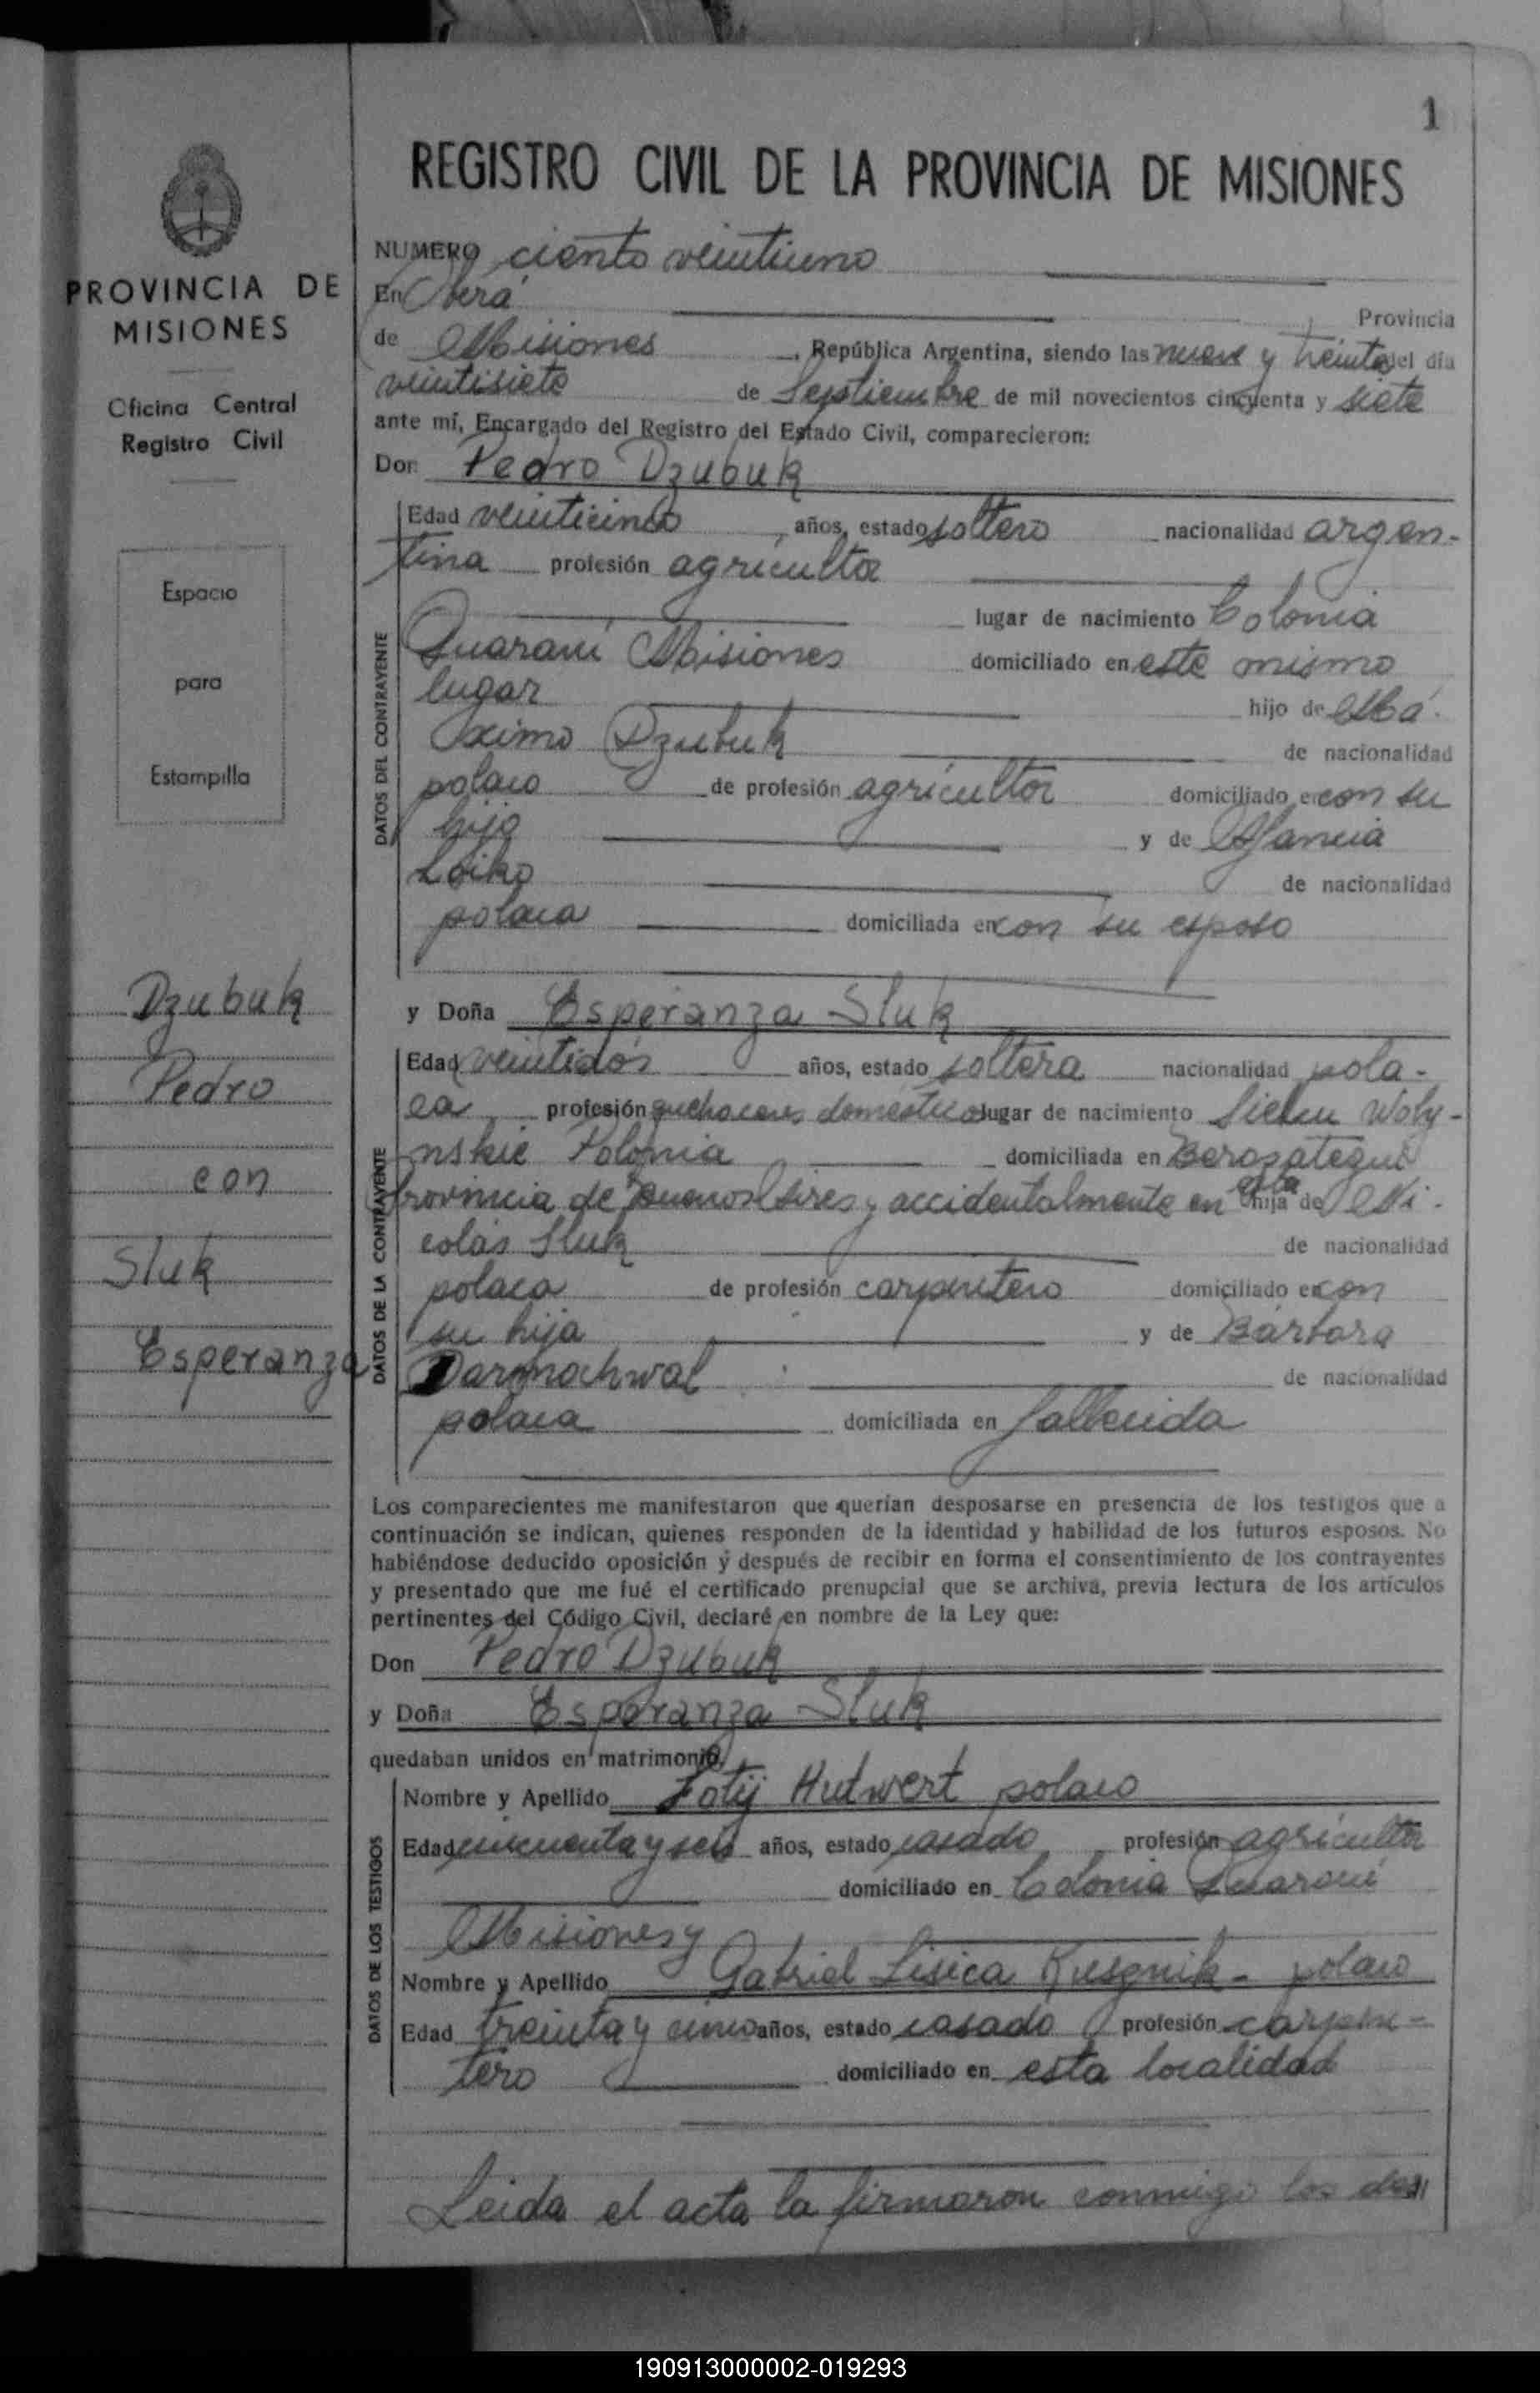 1
REGISTRO CIVIL DE LA PROVINCIA DE MISIONES
PROVINCIA DE
MISIONES
Oficina Central
Registro Civil
Espacio
para
Estampilla
Dzubuk
Pedro
con
Sluk
Esperanza
NUMERO ciento veintiuno
En Oberá Provincia
de Misiones, República Argentina, siendo las nueve y treinta del día
veintisiete de Septiembre de mil novecientos cincuenta y siete
ante mí, Encargado del Registro del Estado Civil, comparecieron:
Don Pedro Dzubuk
DATOS DEL CONTRAYENTE
Edad veinticinco años, estado soltero nacionalidad argen-
tina profesión agricultor
lugar de nacimiento Colonia
Guaraní Misiones domiciliado en este mismo
lugar hijo de Má-
ximo Dzubuk de nacionalidad
polaco de profesión agricultor domiciliado en con su
hijo y de
Loiko de nacionalidad
polaca domiciliada en con su esposo
y Doña Esperanza Sluk
DATOS DE LA CONTRAYENTE
Edad veintidos años, estado soltera nacionalidad pola-
ca profesión quehaceres domésticos lugar de nacimiento Woly-
nskie Polonia domiciliada en Berazategui
Provincia de Buenos Aires y accidentalmente en esta hija de Ni-
colás Sluk de nacionalidad
polaca de profesión carpintero domiciliado en con
su hija y de Bárbara
Darmochwal de nacionalidad
polaca domiciliada en fallecida
Los comparecientes me manifestaron que querían desposarse en presencia de los testigos que a
continuación se indican, quienes responden de la identidad y habilidad de los futuros esposos. No
habiéndose deducido oposición y después de recibir en forma el consentimiento de los contrayentes
y presentado que me fué el certificado prenupcial que se archiva, previa lectura de los artículos
pertinentes del Código Civil, declaré en nombre de la Ley que:
Don Pedro Dzubuk
y Doña Esperanza Sluk
quedaban unidos en matrimonio.
DATOS DE LOS TESTIGOS
Nombre y Apellido Fotij Hutwert polaco
Edad cincuenta y seis años, estado casado profesión agricultor
domiciliado en Colonia Guaraní
Misiones y
Nombre y Apellido Gabriel Lisica polaco
Edad treinta y cinco años, estado casado profesión carpin-
tero domiciliado en esta localidad
Leida el acta la firmaron conmigo los
190913000002-019293